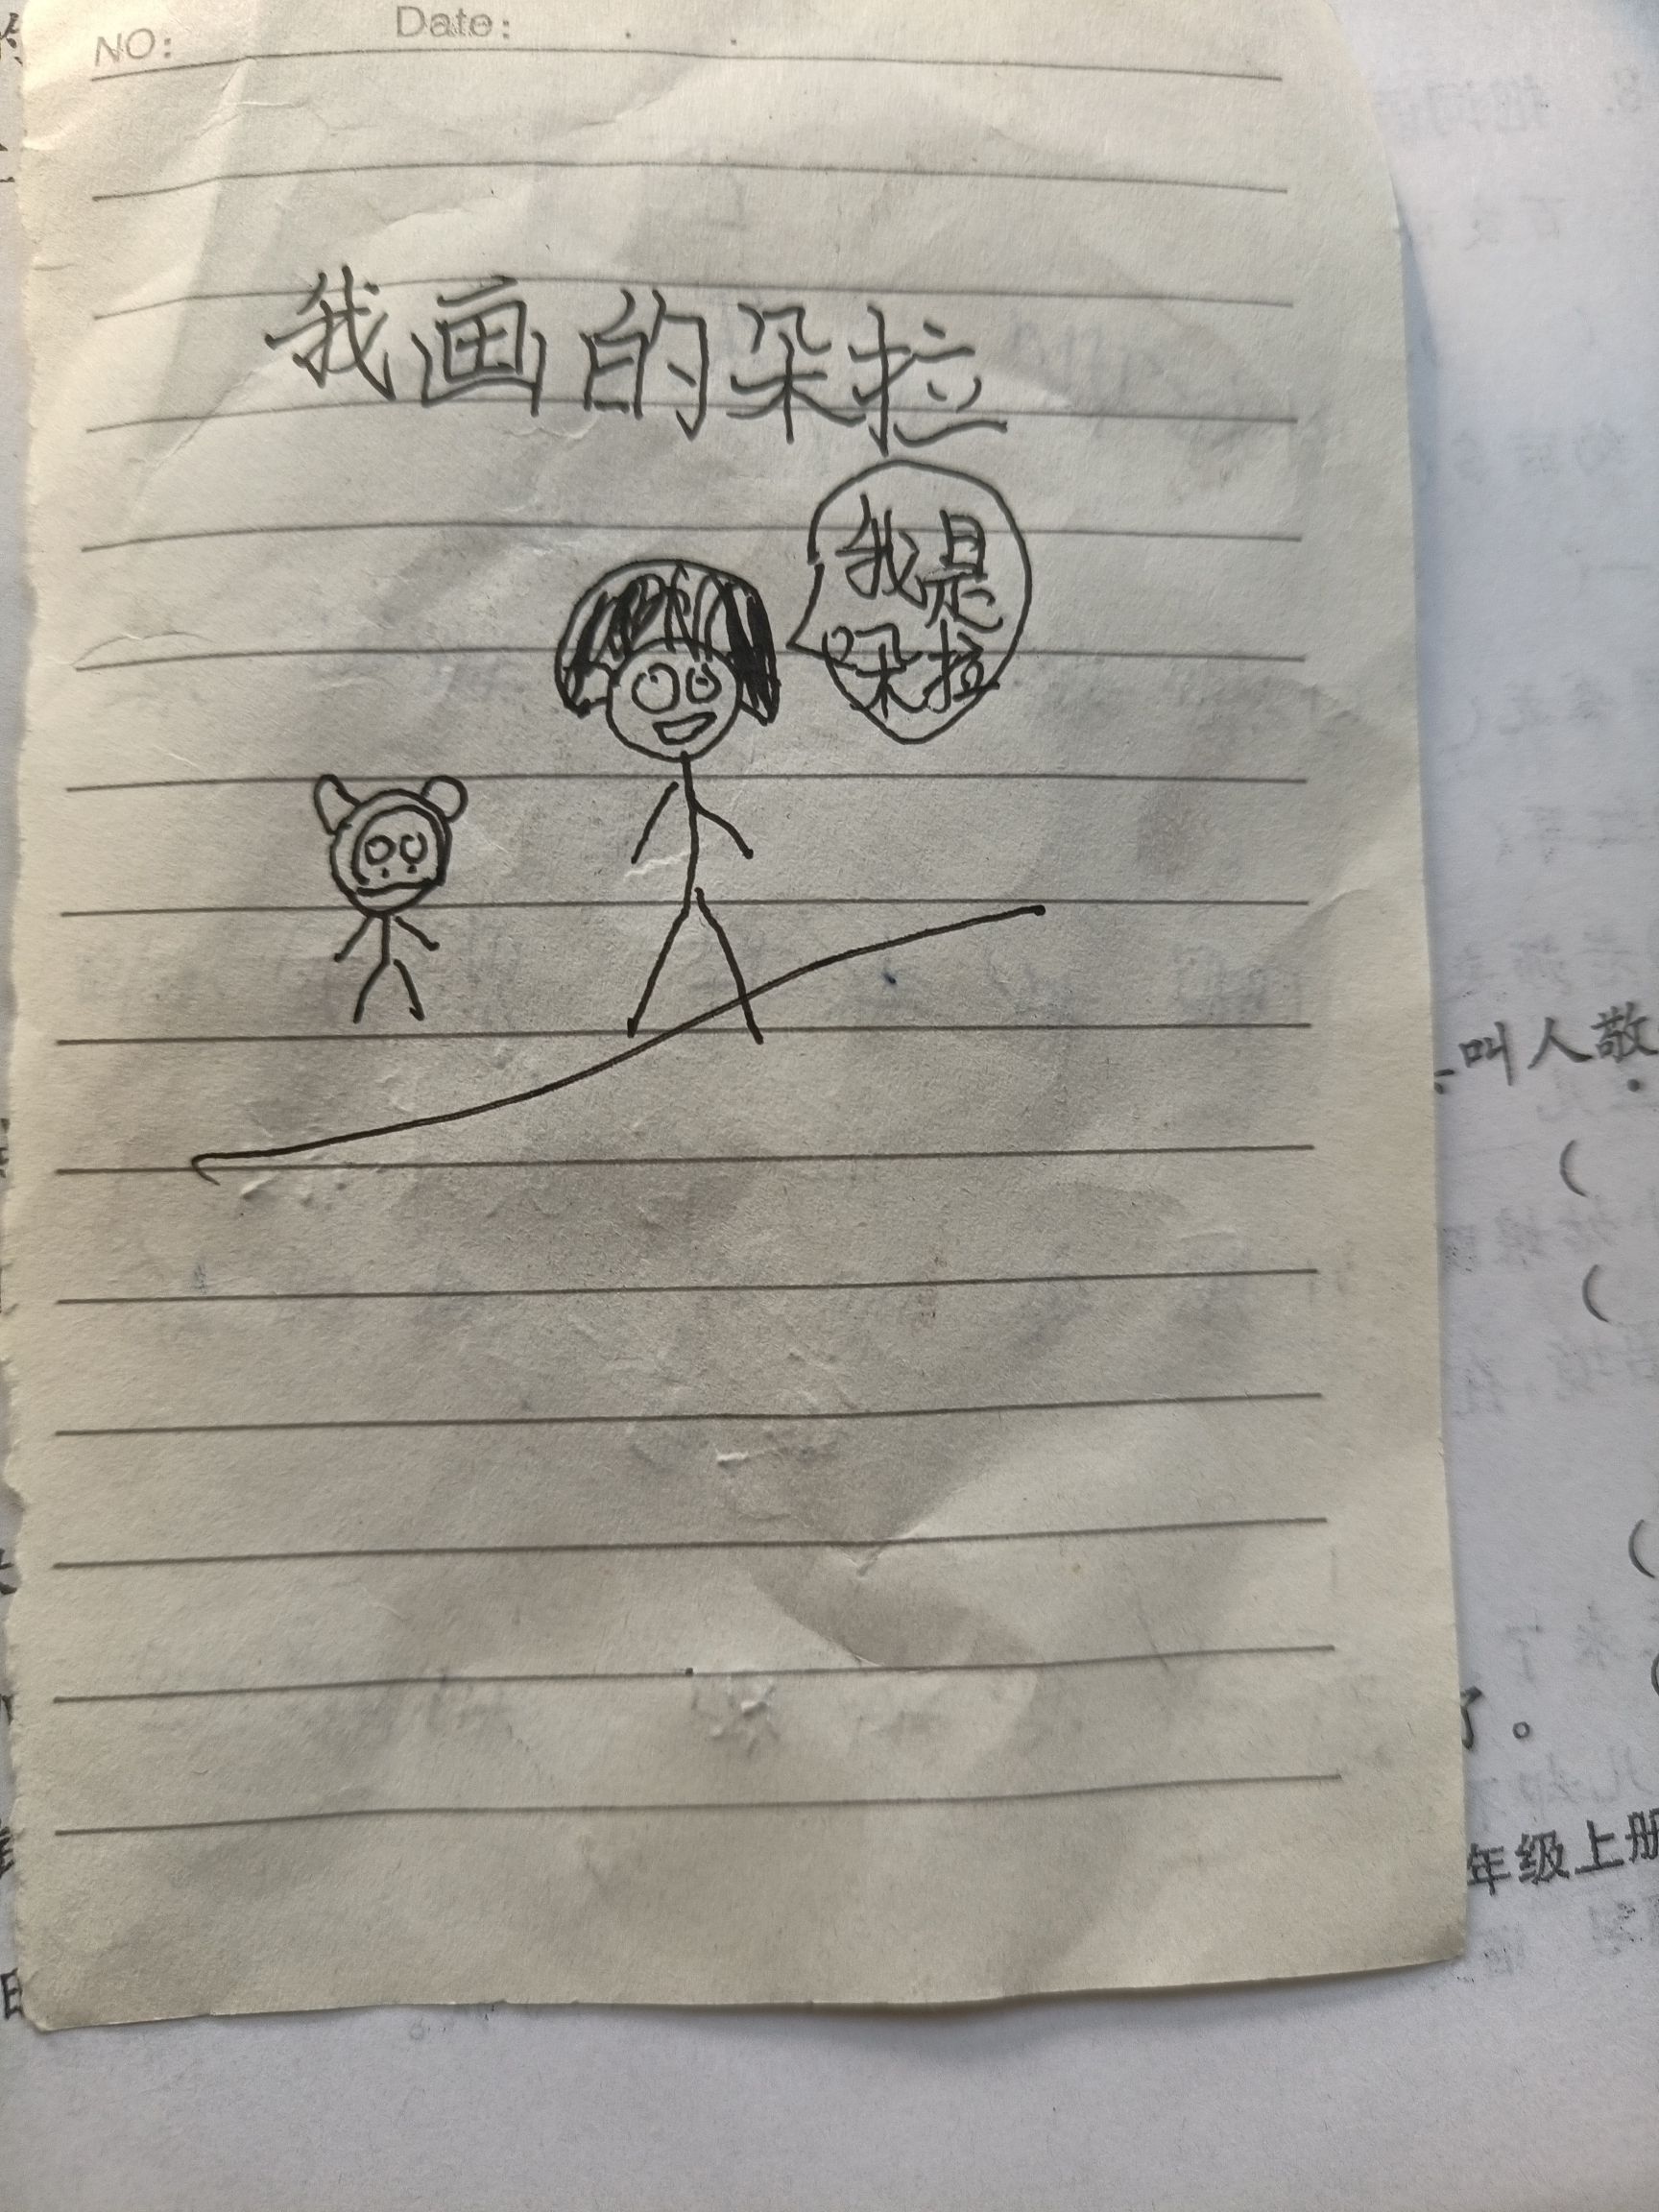 NO:
Date:
我画的朵拉
我是
朵拉
叫人敬
了。
年级上册